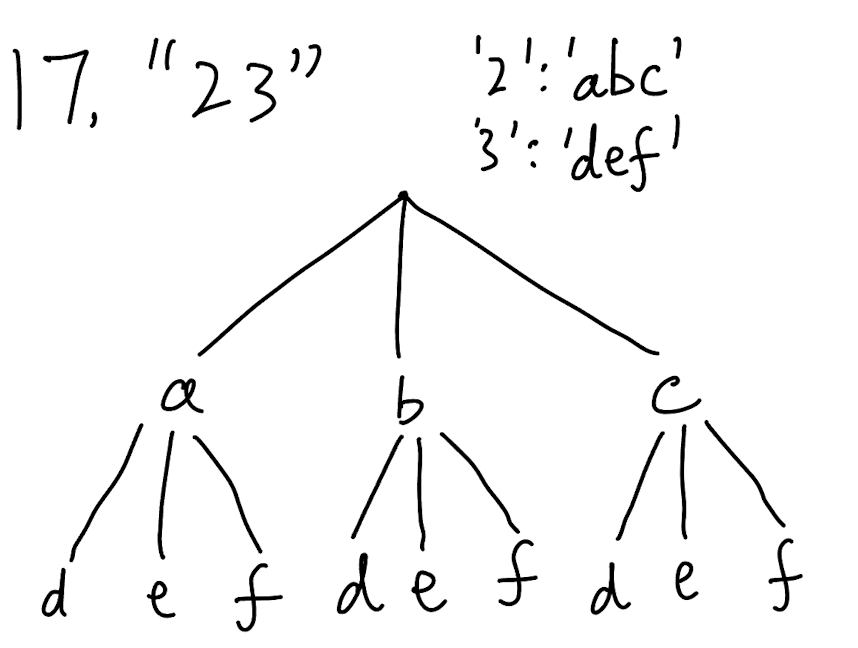 17. "23" '2':'abc'
'3':'def'
a b c
d e f d e f d e f